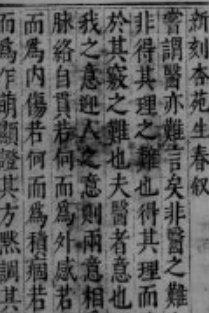 新刻杏苑生春叙
嘗謂醫亦難言矣非醫之難
非得其理之難也得其理而
於其竅之難也夫醫者意也
我之意迎人之意則兩意相
脉絡自貫若何而為外感若
而為内傷若何而為積痼若
而為乍萌顯證其方黙調其